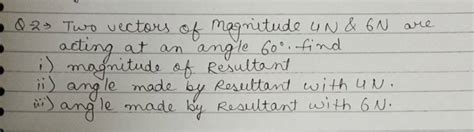 Q2→ Two vectors of Magnitude 4N & 6N are
acting at an angle 60°. find
i) magnitude of Resultant
ii) angle made by Resultant with 4N.
iii) angle made by Resultant with 6N.